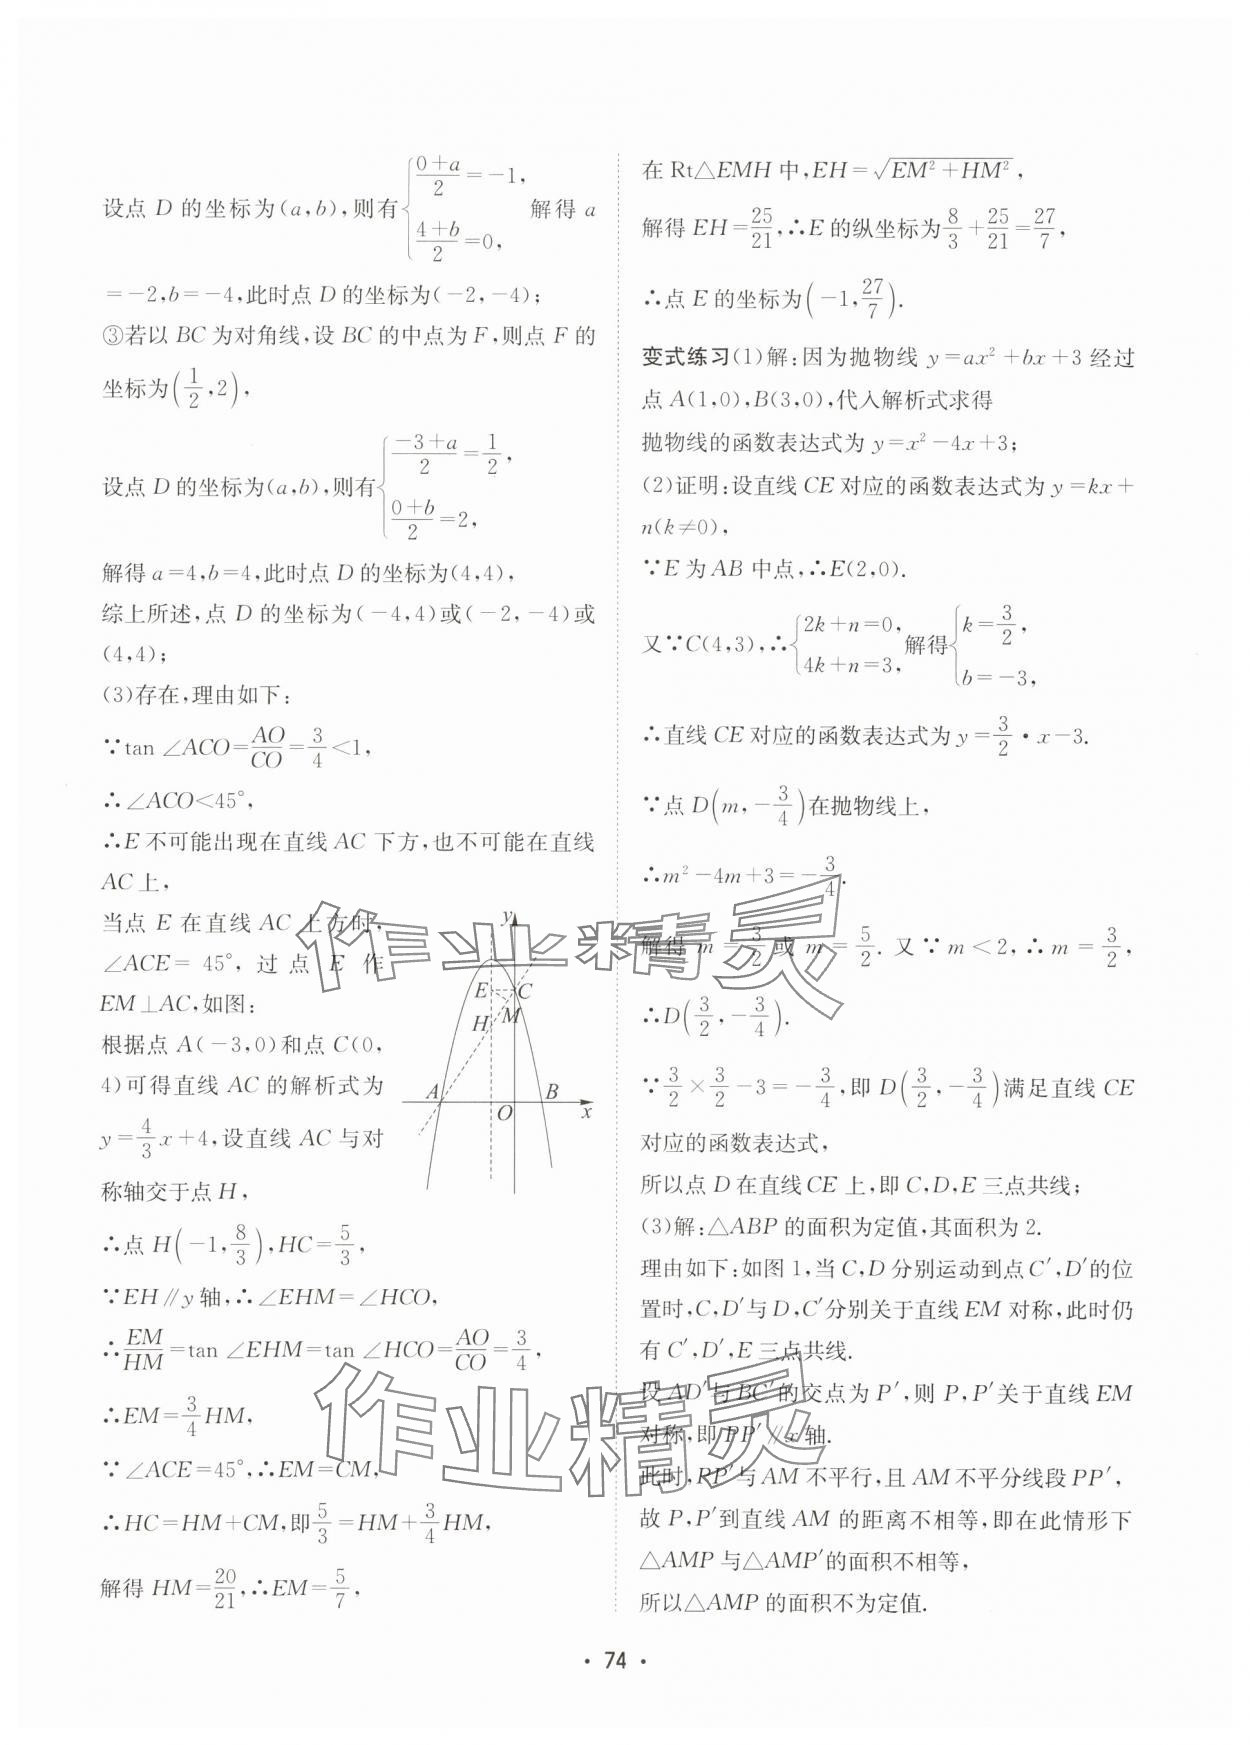 设点 D 的坐标为(a,b),则有{(0+a)/2=-1, (4+b)/2=0, 解得 a
=-2,b=-4,此时点 D 的坐标为(-2,-4);
③若以 BC 为对角线,设 BC 的中点为 F,则点 F 的
坐标为(1/2,2),
设点 D 的坐标为(a,b),则有{(-3+a)/2=1/2, (0+b)/2=2,
解得 a=4,b=4,此时点 D 的坐标为(4,4),
综上所述,点 D 的坐标为(-4,4)或(-2,-4)或
(4,4);
(3)存在,理由如下:
∵tan ∠ACO=AO/CO=3/4<1,
∴∠ACO<45°,
∴E 不可能出现在直线 AC 下方,也不可能在直线
AC 上,
当点 E 在直线 AC 上方时,
∠ACE= 45°, 过 点 E 作
EM⊥AC,如图:
根据点 A(-3,0)和点 C(0,
4)可得直线 AC 的解析式为
y=4/3x+4,设直线 AC 与对
称轴交于点 H,
y
E
C
H
M
A
B
O
x
∴点 H(-1,8/3),HC=5/3,
∵EH∥y 轴,∴∠EHM=∠HCO,
∴EM/HM=tan ∠EHM=tan ∠HCO=AO/CO=3/4,
∴EM=3/4HM,
∵∠ACE=45°,∴EM=CM,
∴HC=HM+CM,即5/3=HM+3/4HM,
解得 HM=20/21,∴EM=5/7,
在 Rt△EMH 中,EH=√(EM²+HM²),
解得 EH=25/21,∴E 的纵坐标为8/3+25/21=27/7,
∴点 E 的坐标为(-1,27/7).
变式练习(1)解:因为抛物线 y=ax²+bx+3 经过
点 A(1,0),B(3,0),代入解析式求得
抛物线的函数表达式为 y=x²-4x+3;
(2)证明:设直线 CE 对应的函数表达式为 y=kx+
n(k≠0),
∵E 为 AB 中点,∴E(2,0).
又∵C(4,3),∴{2k+n=0, 4k+n=3, 解得{k=3/2, b=-3,
∴直线 CE 对应的函数表达式为 y=3/2·x-3.
∵点 D(m,-3/4)在抛物线上,
∴m²-4m+3=-3/4.
解得 m=3/2或 m=5/2. 又∵m<2,∴m=3/2,
∴D(3/2,-3/4).
∵3/2×3/2-3=-3/4,即 D(3/2,-3/4)满足直线 CE
对应的函数表达式,
所以点 D 在直线 CE 上,即 C,D,E 三点共线;
(3)解:△ABP 的面积为定值,其面积为 2.
理由如下:如图 1,当 C,D 分别运动到点 C′,D′的位
置时,C,D′与 D,C′分别关于直线 EM 对称,此时仍
有 C′,D′,E 三点共线.
设 AD′与 BC′的交点为 P′,则 P,P′关于直线 EM
对称,即 PP′∥x 轴.
此时,PP′与 AM 不平行,且 AM 不平分线段 PP′,
故 P,P′到直线 AM 的距离不相等,即在此情形下
△AMP 与△AMP′的面积不相等,
所以△AMP 的面积不为定值.
作业精灵
作业精灵
· 74 ·